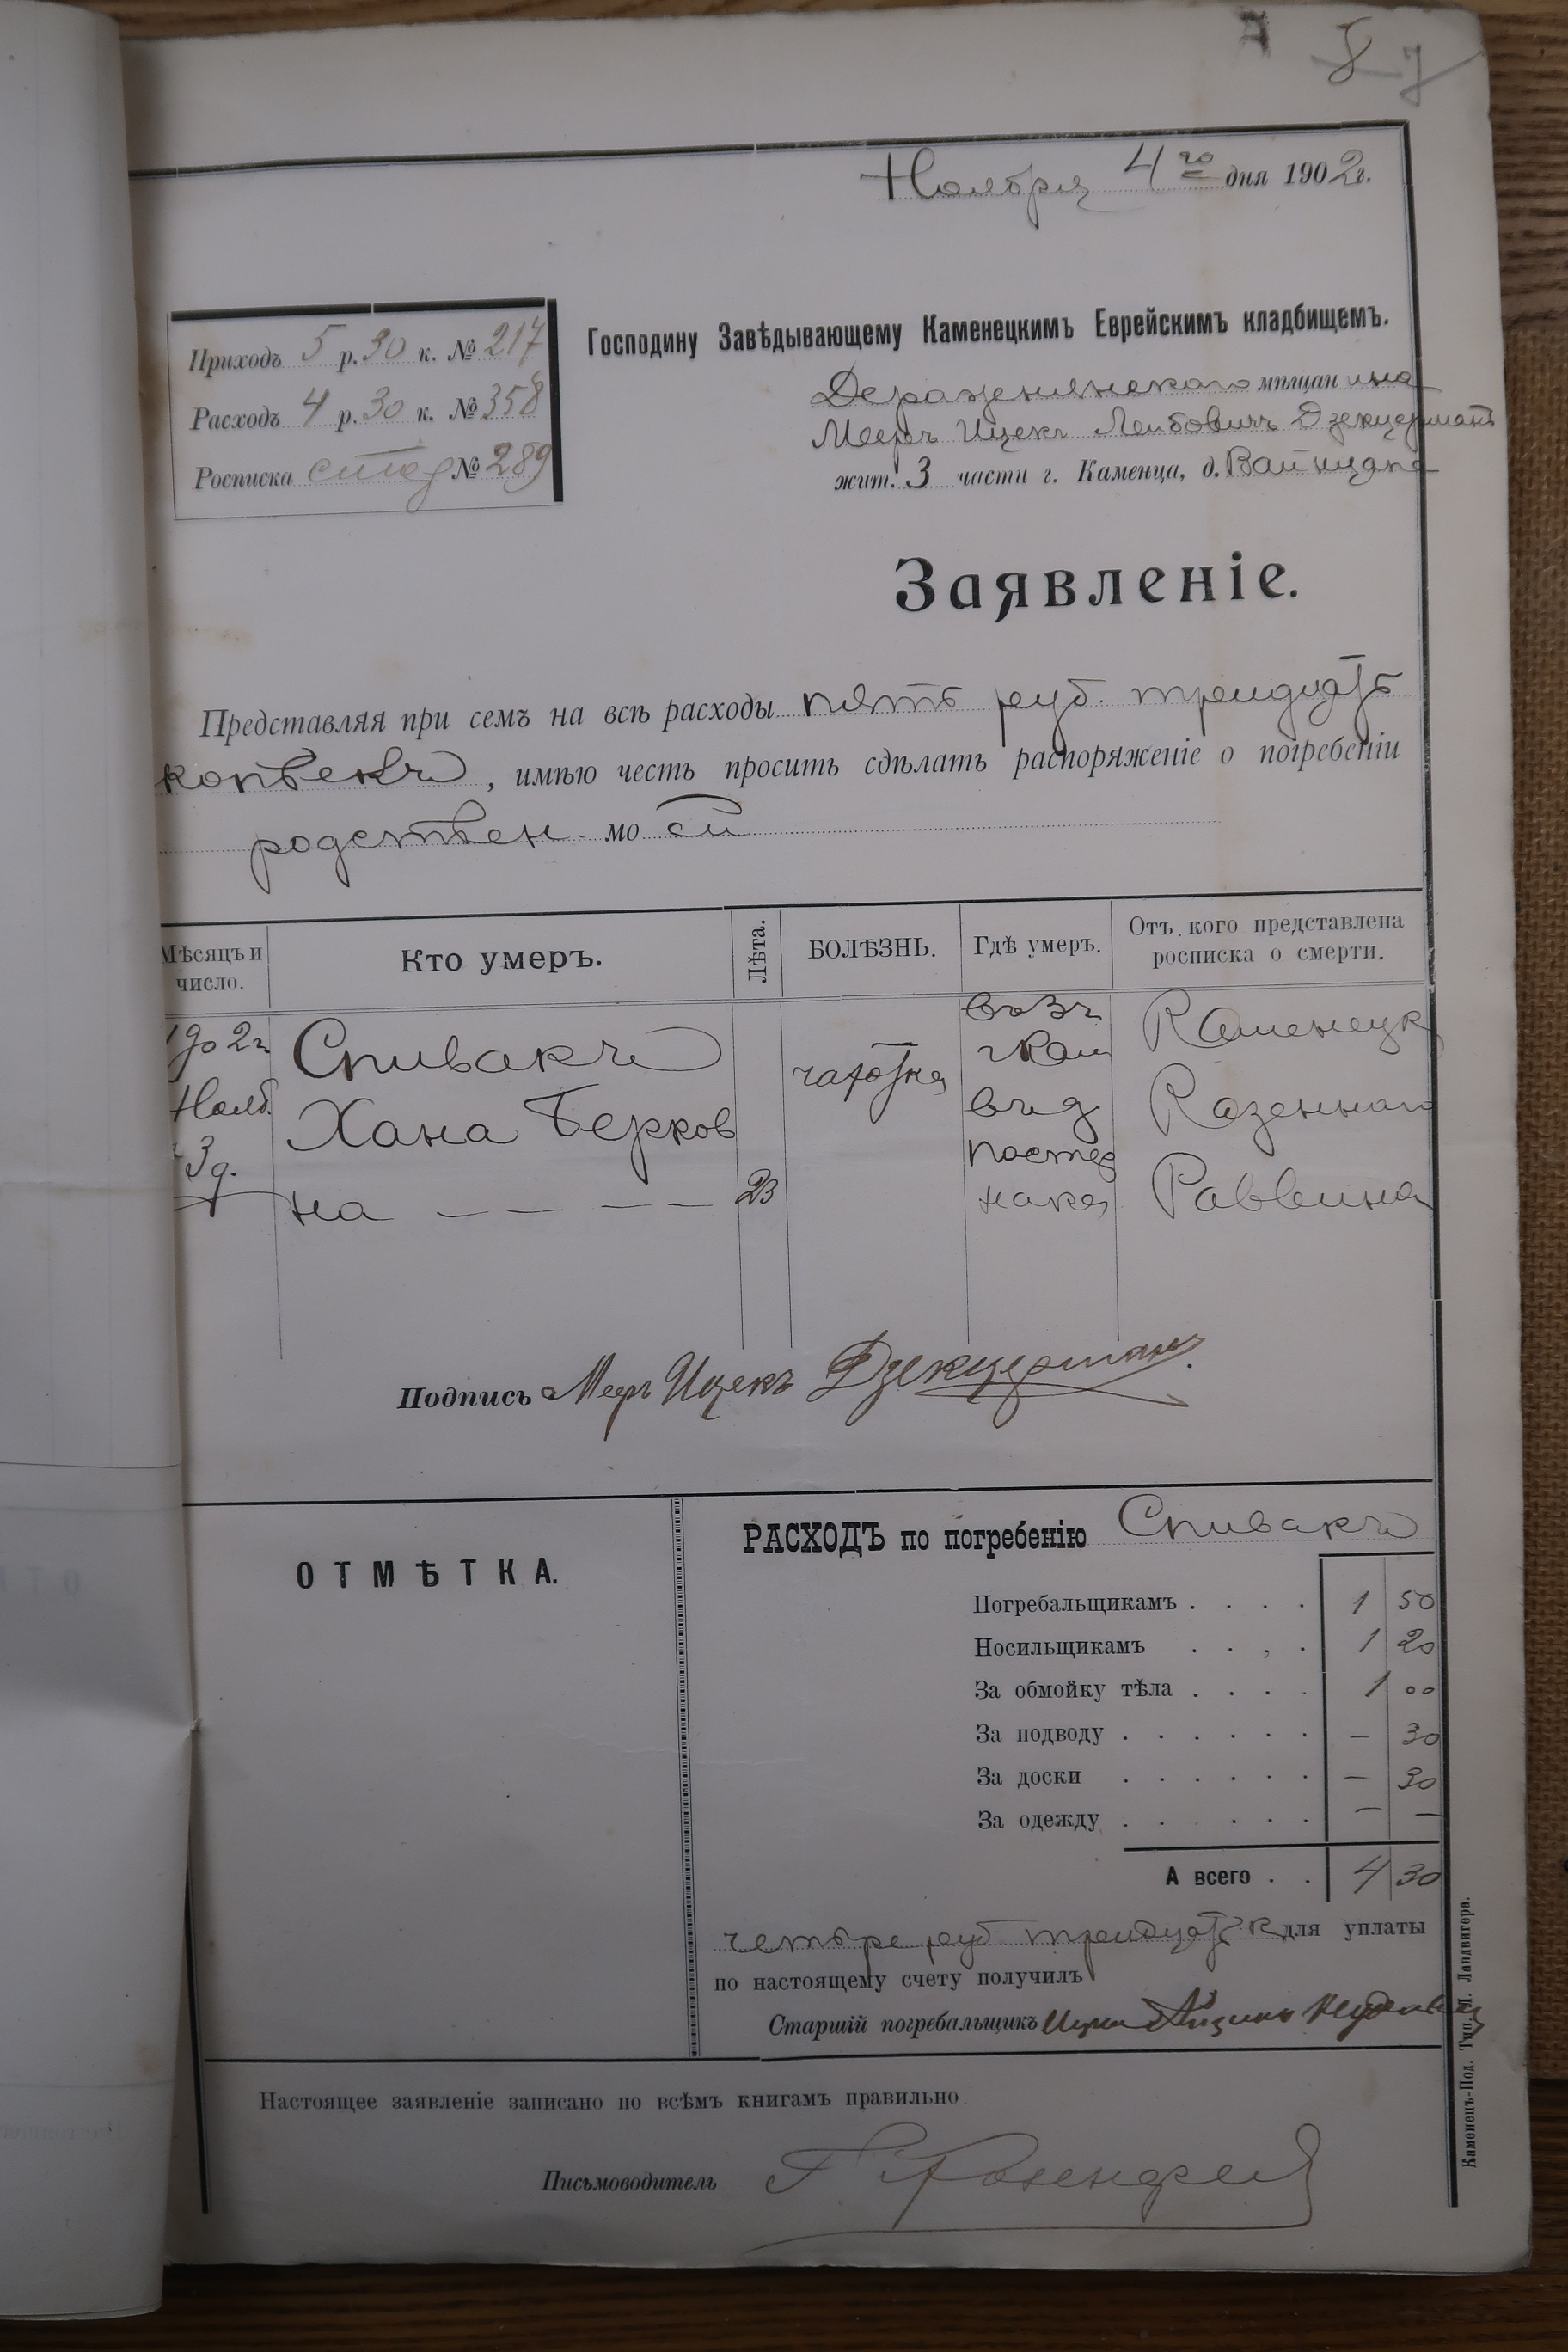 8 7
Ноября 4го дня 1902 г.
Приходъ 5 р. 30 к. № 217
Расходъ 4 р. 30 к. № 358
Росписка стар № 289
Господину Завѣдывающему Каменецкимъ Еврейскимъ кладбищемъ.
Деражнянскаго мѣщанина
Мееръ Ицекъ Лейбовичъ Дзекцерманъ
жит. 3 части г. Каменца, д.
Заявленіе.
Представляя при семъ на всѣ расходы пять руб. тридцать
копѣекъ, имѣю честь просить сдѣлать распоряженіе о погребеніи
родствен. моей
Мѣсяцъ и число. Кто умеръ. Лѣта. БОЛѢЗНЬ. Гдѣ умеръ. Отъ кого представлена росписка о смерти.
1902 г. Спивакъ чахотка въ 3 ч. Каменецк
Нояб. Хана Берков г. Кам въ д. Казеннаго
3 д. на — — — — 23 Раввина
Подпись Меръ Ицекъ Дзекцерманъ.
ОТМѢТКА.
РАСХОДЪ по погребенію Спивакъ
Погребальщикамъ . . . . 1 50
Носильщикамъ . . , . 1 20
За обмойку тѣла . . . . 1 00
За подводу . . . . . . — 30
За доски . . . . . . — 30
За одежду . . . . . . — —
А всего . . 4 30
четыре руб тридцать к для уплаты
по настоящему счету получилъ
Старшій погребальщикъ
Настоящее заявленіе записано по всѣмъ книгамъ правильно.
Письмоводитель Г. Розенфельд
Каменецъ-Под. Тип. М. Ландвигера.